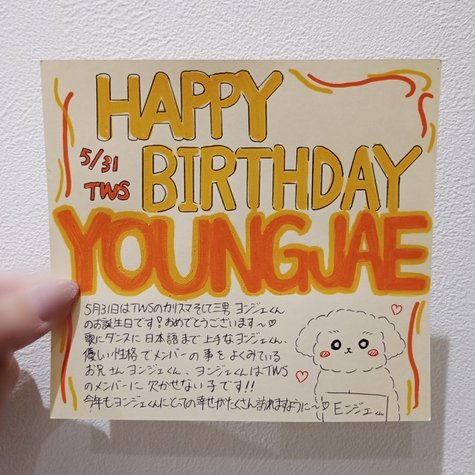 HAPPY
5/31
TWS
BIRTHDAY
YOUNGJAE
5月31日はTWSのカリスマそして三男 ヨンジェくん
のお誕生日です!おめでとうございます〜♡
歌にダンスに日本語まで上手なヨンジェくん、
優しい性格でメンバーの事をよくみている
お兄さんヨンジェくん、ヨンジェくんはTWS
のメンバーに欠かせない子です!!
今年もヨンジェくんにとっての幸せがたくさん訪れますように〜♡
ヨンジェくん